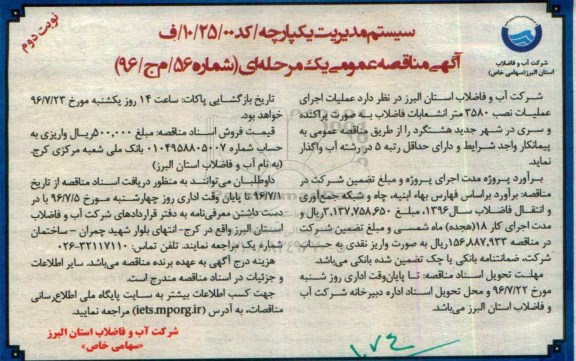 نوبت دوم
سیستم مدیریت یکپارچه/کد ۱۰/۲۵/۰۰/ف
آگهی مناقصه عمومی یک مرحله‌ای (شماره ۵۶/م ج/۹۶)
شرکت آب و فاضلاب
استان البرز (سهامی خاص)
شرکت آب و فاضلاب استان البرز در نظر دارد عملیات اجرای
عملیات نصب ۳۵۸۰ متر انشعابات فاضلاب به صورت پراکنده
و سری در شهر جدید هشتگرد را از طریق مناقصه عمومی به
پیمانکار واجد شرایط و دارای حداقل رتبه ۵ در رشته آب واگذار
نماید.
برآورد پروژه مدت اجرای پروژه و مبلغ تضمین شرکت در
مناقصه: برآورد براساس فهارس بهاء ابنیه، چاه و شبکه جمع‌آوری
و انتقال فاضلاب سال ۱۳۹۶، مبلغ ۳،۱۳۷،۷۵۸،۶۵۰ ریال و
مدت اجرای کار ۱۸ (هجده) ماه شمسی و مبلغ تضمین شرکت
در مناقصه ۱۵۶،۸۸۷،۹۳۳ ریال به صورت واریز نقدی به حساب
شرکت، ضمانتنامه بانکی یا چک تضمین شده بانکی می‌باشد.
مهلت تحویل اسناد مناقصه: تا پایان وقت اداری روز شنبه
مورخ ۹۶/۷/۲۲ و محل تحویل اسناد اداره دبیرخانه شرکت آب
و فاضلاب استان البرز می‌باشد.
تاریخ بازگشایی پاکات: ساعت ۱۴ روز یکشنبه مورخ ۹۶/۷/۲۳
خواهد بود.
قیمت فروش اسناد مناقصه: مبلغ ۵۰۰،۰۰۰ ریال واریزی به
حساب شماره ۰۱۰۴۹۵۸۸۰۵۰۰۷ بانک ملی شعبه مرکزی کرج.
(به نام آب و فاضلاب استان البرز)
داوطلبان می‌توانند به منظور دریافت اسناد مناقصه از تاریخ
۹۶/۷/۱ تا پایان وقت اداری روز چهارشنبه مورخ ۹۶/۷/۵ با در
دست داشتن معرفی‌نامه به دفتر قراردادهای شرکت آب و فاضلاب
استان البرز واقع در کرج- انتهای بلوار شهید چمران – ساختمان
شماره یک مراجعه نمایند. تلفن تماس: ۳۲۱۱۷۱۱۰-۰۲۶
هزینه درج آگهی به عهده برنده مناقصه می‌باشد. سایر اطلاعات
و جزئیات در اسناد مناقصه مندرج است.
جهت کسب اطلاعات بیشتر به سایت پایگاه ملی اطلاع‌رسانی
مناقصات، به آدرس (iets.mporg.ir) مراجعه نمایید.
شرکت آب و فاضلاب استان البرز
«سهامی خاص»
۱۰۷۴